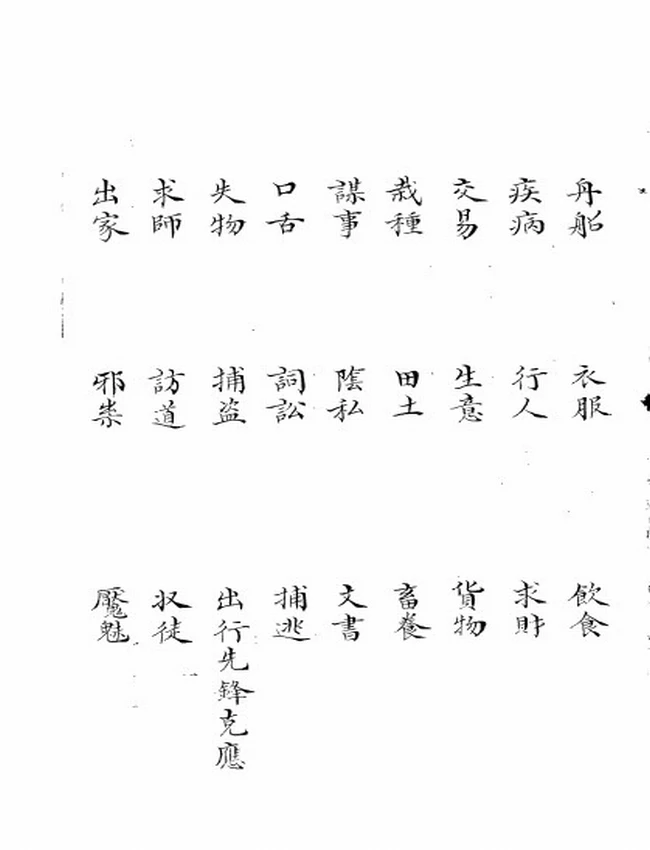 舟船 衣服 飲食
疾病 行人 求財
交易 生意 貨物
栽種 田土 畜養
謀事 陰私 文書
口舌 詞訟 捕逃
失物 捕盜 出行先鋒克應
求師 訪道 収徒
出家 邪祟 魘魅